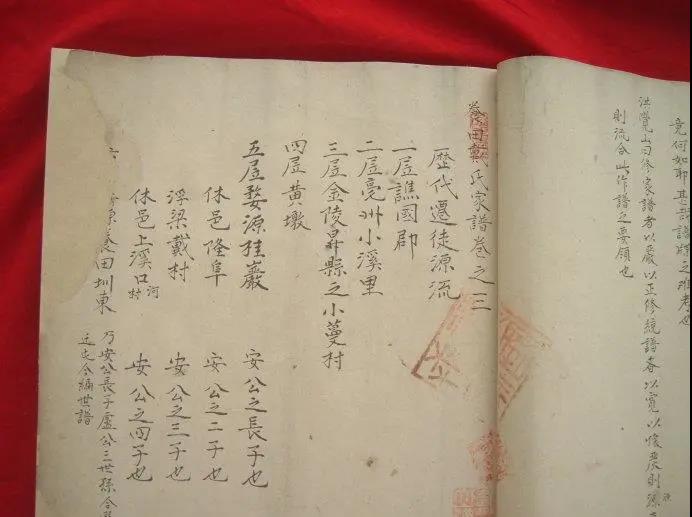 竟何如耶甚哉譜牒之難考也
洪覺山曰修家譜者以嚴以正修統譜者以寬以恢嚴則源
則流合此作譜之要領也
養田戴氏家譜卷之三
歷代遷徙源流
一居譙國郡
二居亳州小溪里
三居金陵昇縣之小蔓村
四居黃墩
五居婺源桂巖 安公之長子也
休邑隆阜 安公之二子也
浮梁戴村 安公之三子也
休邑上溪口河村 安公之四子也
田圳東 乃安公長子盧公三世孫合
迁史今編世譜